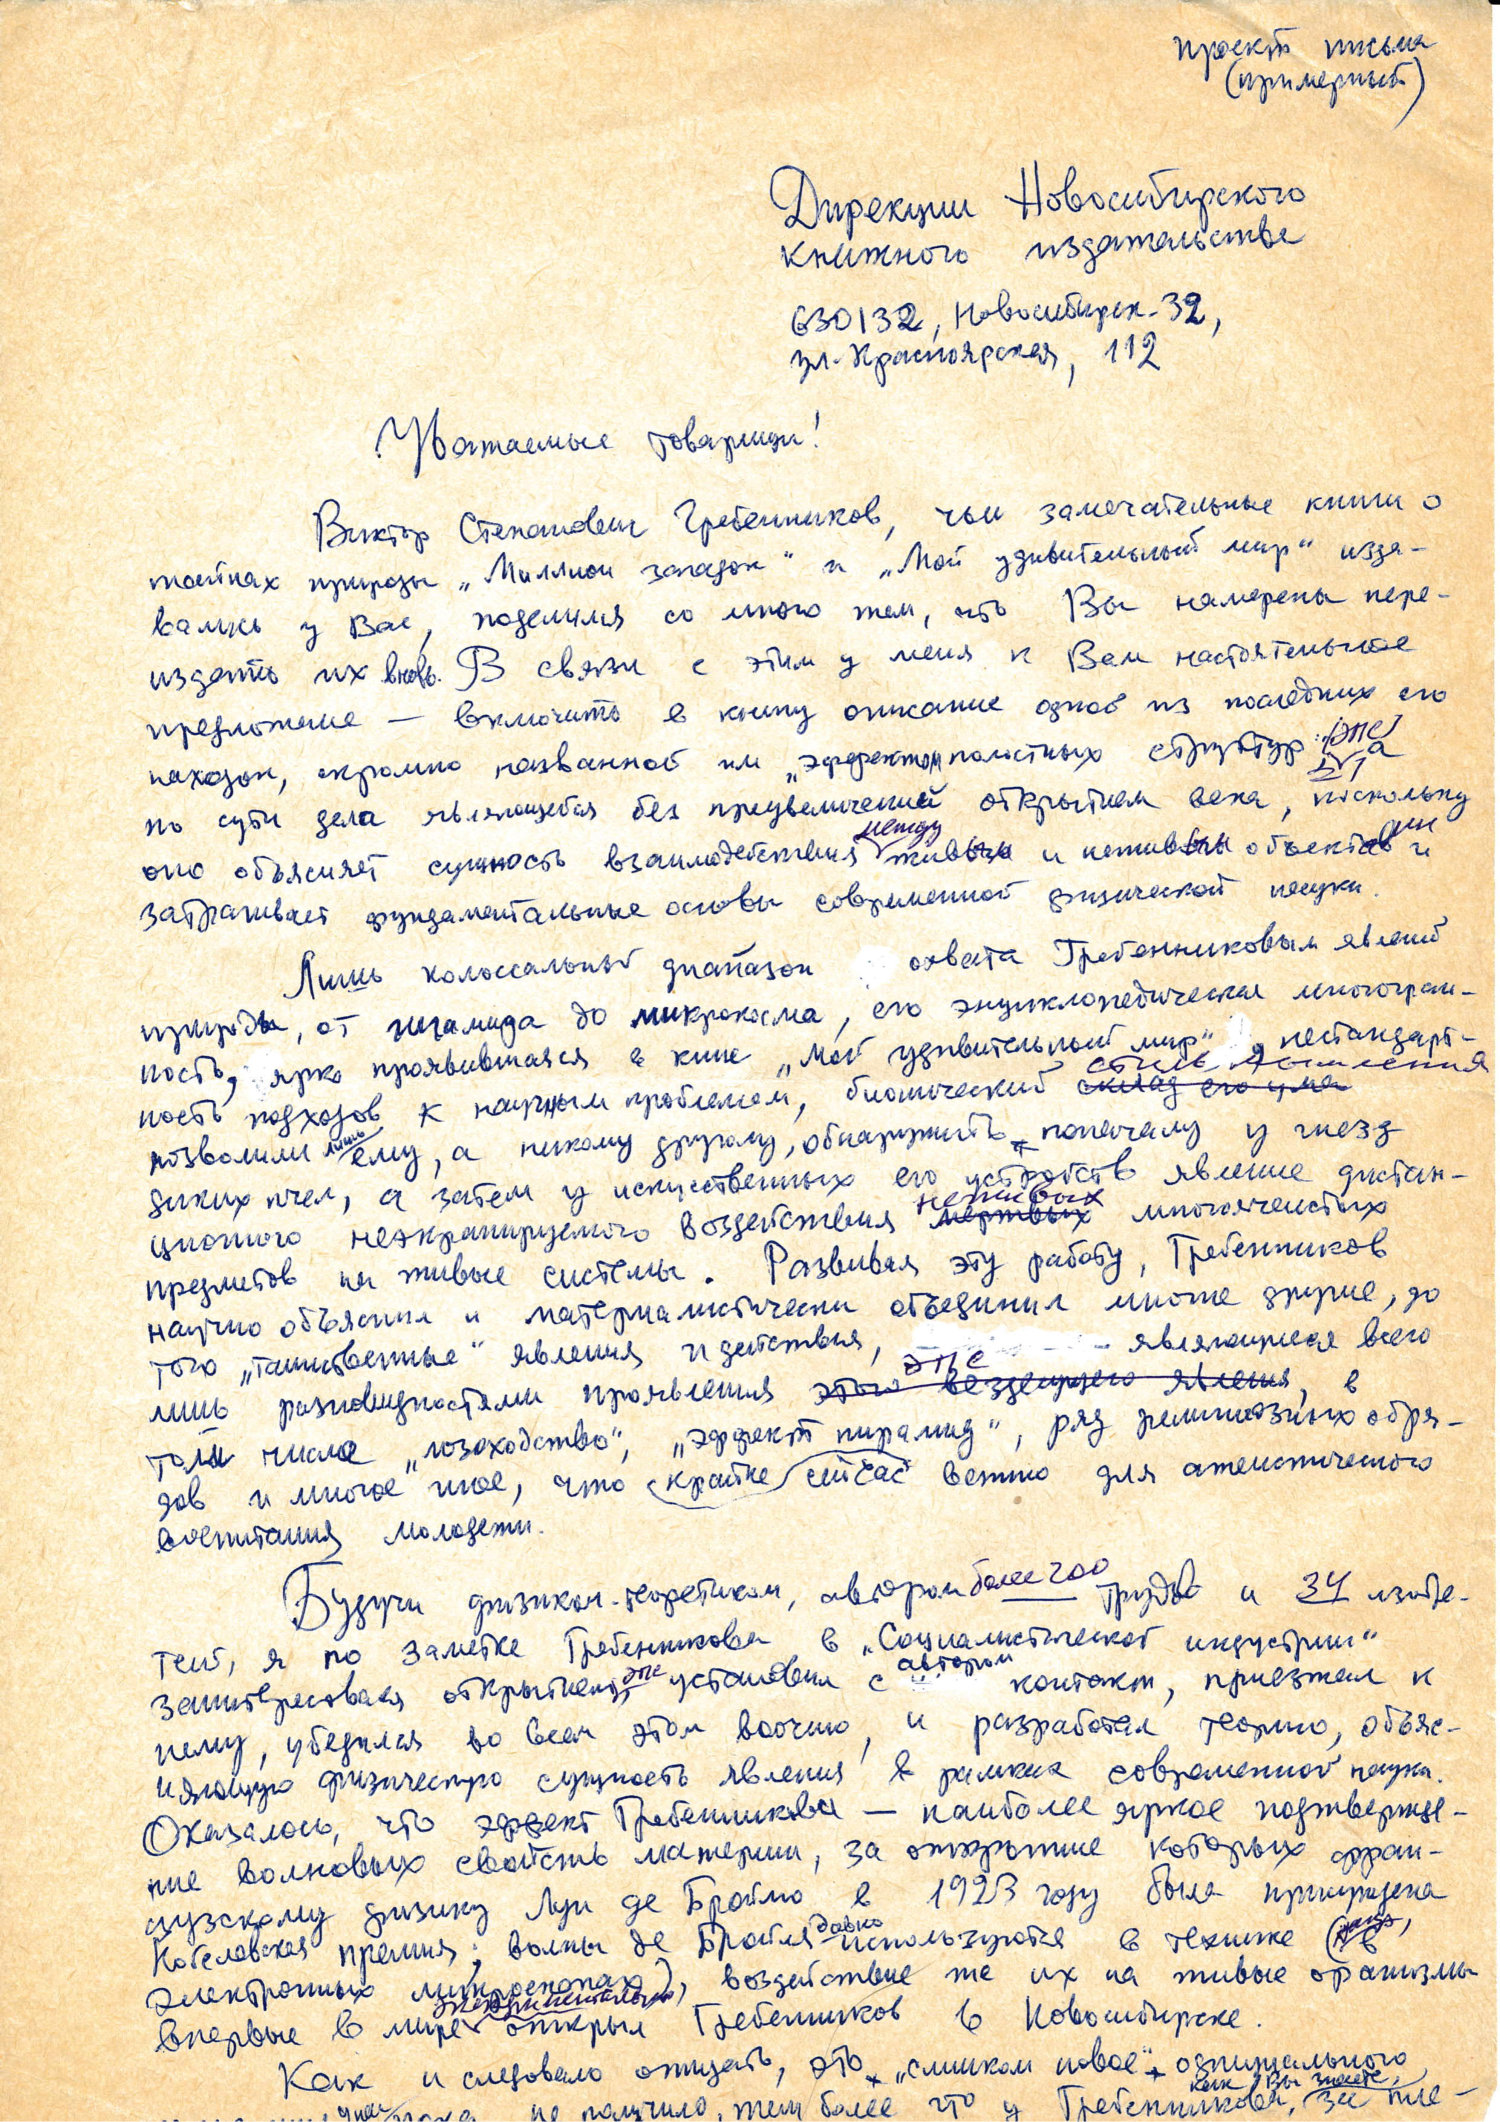 проект письма
(примерный)
Дирекции Новосибирского
книжного издательства
630132, Новосибирск-32,
ул. Красноярская, 112
Уважаемые товарищи!
Виктор Степанович Гребенников, чьи замечательные книги о
тайнах природы „Миллион загадок“ и „Мой удивительный мир“ изда-
вались у Вас, поделился со мною тем, что Вы намерены пере-
издать их вновь. В связи с этим у меня к Вам настоятельное
предложение — включить в книгу описание одной из последних его
находок, скромно названной им „эффектом полостных структур“ (ЭПС), а
по сути дела являющейся без преувеличений открытием века, поскольку
оно объясняет сущность взаимодействия между живыми и неживыми объектами и
затрагивает фундаментальные основы современной физической науки.
Лишь колоссальный диапазон охвата Гребенниковым явлений
природы, от до микрокосма, его энциклопедическая многогран-
ность, ярко проявившаяся в книге „Мой удивительный мир“, нестандарт-
ность подходов к научным проблемам, бионический склад его ума стиль мышления
позволили лишь ему, а никому другому, обнаружить поначалу у гнезд
диких пчел, а затем у искусственных его устройств явление дистан-
ционного неэкранируемого воздействия мертвых неживых многоячеистых
предметов на живые системы. Развивая эту работу, Гребенников
научно объяснил и материалистически объединил многие другие, до
того „таинственные“ явления и действия, являющиеся всего
лишь разновидностями проявления этого вездесущего явления ЭПС, в
том числе „лозоходство“, „эффект пирамид“, ряд религиозных обря-
дов и многое иное, что крайне сейчас важно для атеистического
воспитания молодежи.
Будучи физиком-теоретиком, автором более 200 трудов и 34 изобре-
тений, я по заметке Гребенникова в „Социалистической индустрии“
заинтересовался открытием ЭПС, установил с автором контакт, приезжал к
нему, убедился во всем этом воочию, и разработал теорию, объяс-
няющую физическую сущность явления в рамках современной науки.
Оказалось, что эффект Гребенникова — наиболее яркое подтвержде-
ние волновых свойств материи, за открытие которых фран-
цузскому физику Луи де Бройлю в 1923 году была присуждена
Нобелевская премия; волны де Бройля давно используются в технике (в
электронных микроскопах), воздействие же их на живые организмы
впервые в мире экспериментально открыл Гребенников в Новосибирске.
Как и следовало ожидать, это „слишком новое“ официального
не получило, тем более что у Гребенникова, как Вы знаете, за пле-